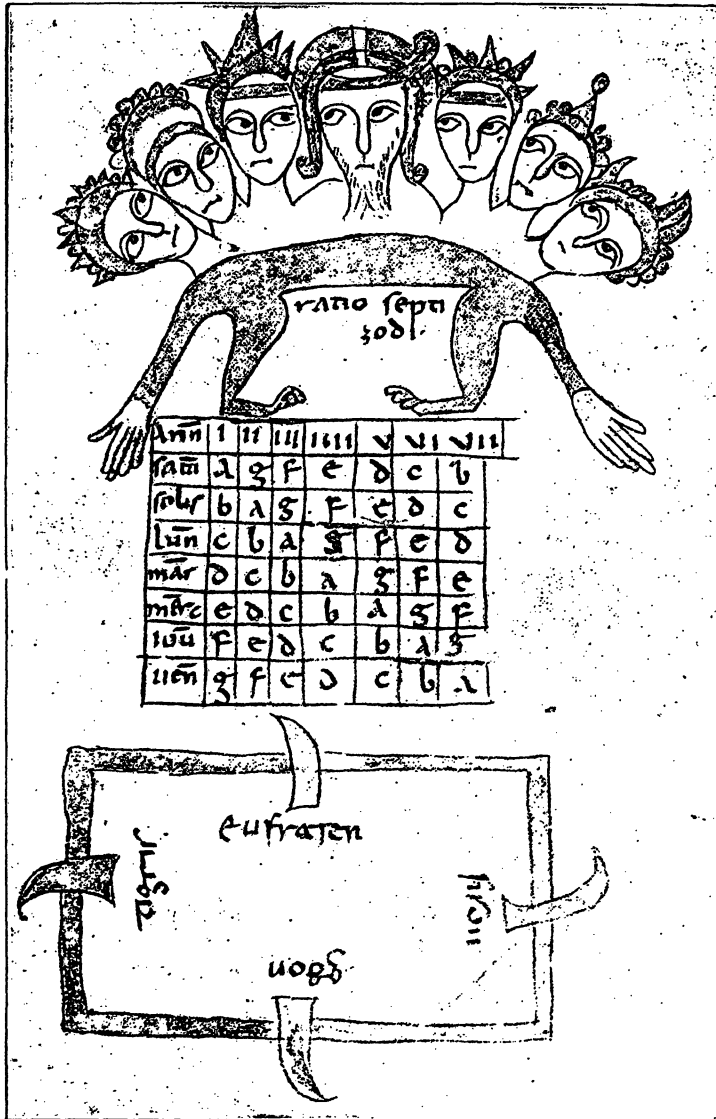 ratio septi
zodi.
Ann̄ I II III IIII V VI VII
sat̄ a g f e d c b
solis b a g f e d c
lun̄ c b a g f e d
mar̄ d c b a g f e
merc̄ e d c b a g f
iou̅ f e d c b a g
uen̄ g f e d c b a
eufraten
tigris
fison
geon